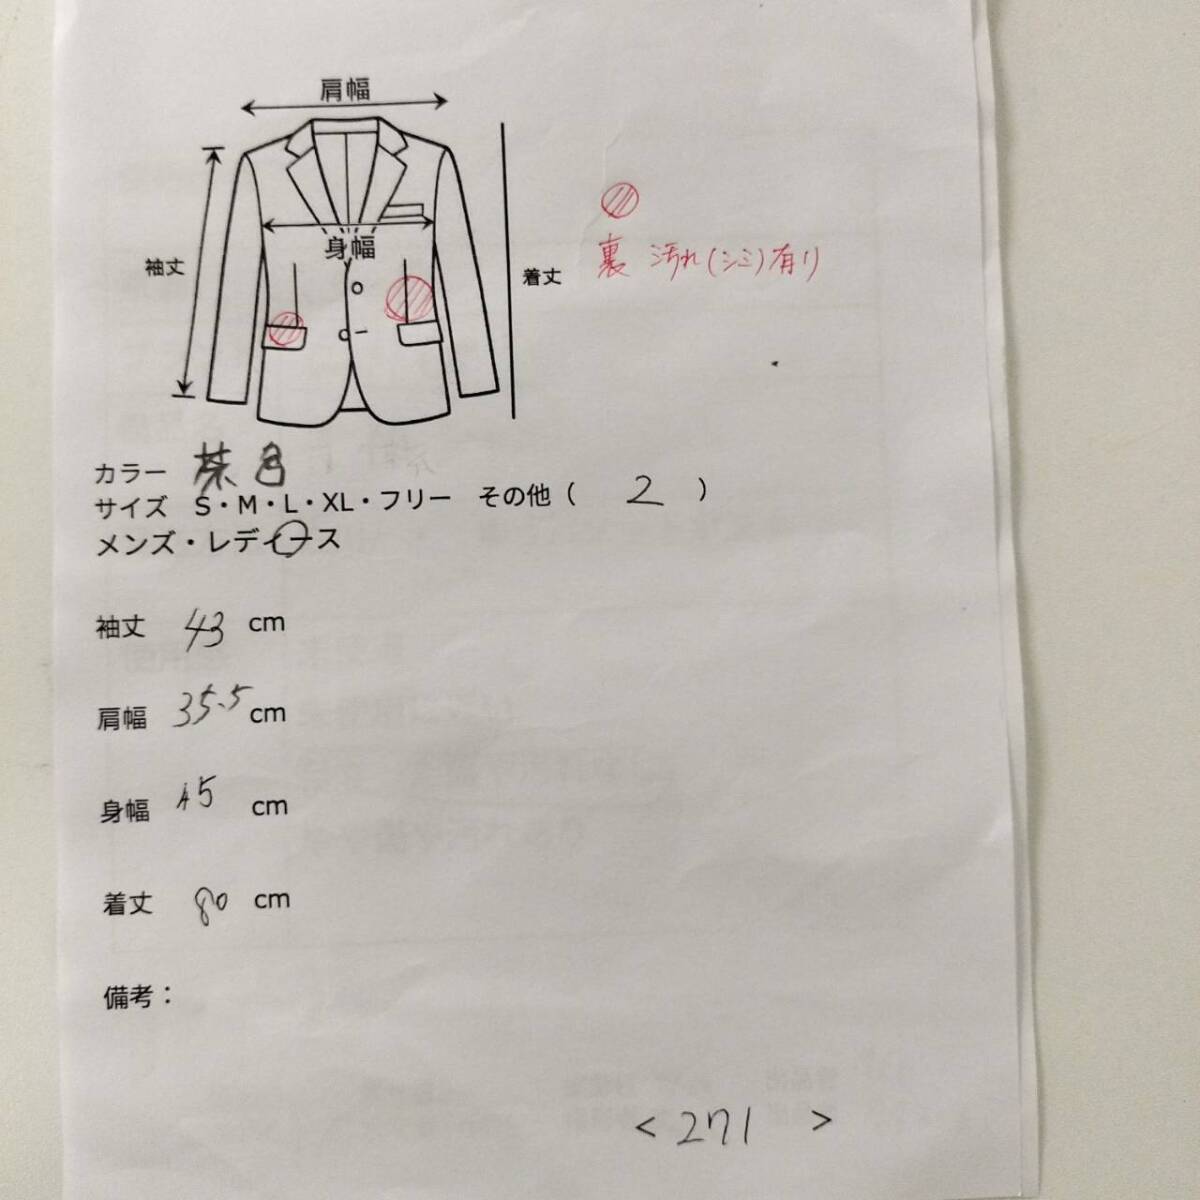 肩幅
身幅
袖丈
着丈
裏 汚れ(シミ)有り
カラー 茶色
サイズ S・M・L・XL・フリー その他( 2 )
メンズ・レディース
袖丈 43 cm
肩幅 35.5 cm
身幅 45 cm
着丈 80 cm
備考：
< 271 >